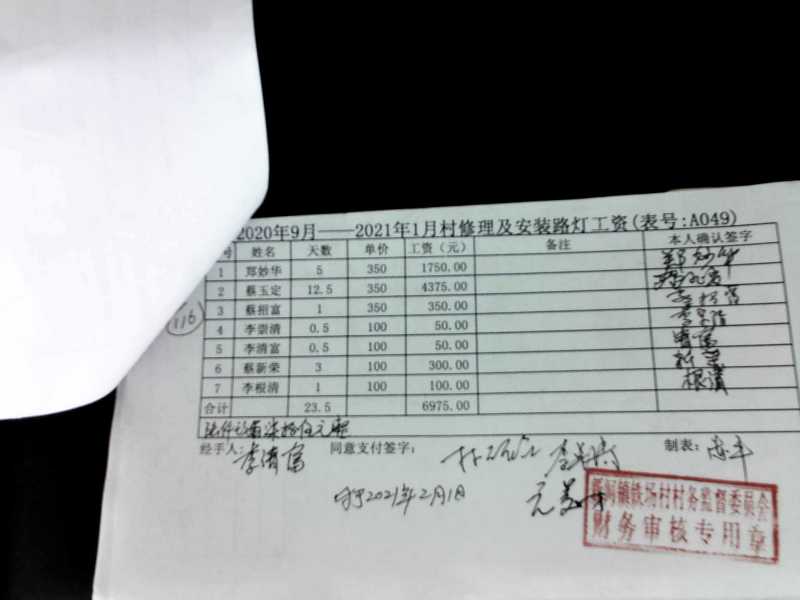 2020年9月——2021年1月村修理及安装路灯工资(表号:A049)
号 姓名 天数 单价 工资（元） 备注 本人确认签字
1 郑妙华 5 350 1750.00 郑妙华
2 蔡玉定 12.5 4375.00 350
3 蔡招富 1 350 350.00
4 李崇清 0.5 100 50.00
5 李清富 0.5 100 50.00 清富
6 蔡新荣 3 100 300.00 新荣
7 李根清 1 100 100.00 根清
合计 23.5 6975.00
116
经手人: 李清富 同意支付签字: 制表:
于2021年2月1日
镇铁场村村务监督委员会
财务审核专用章